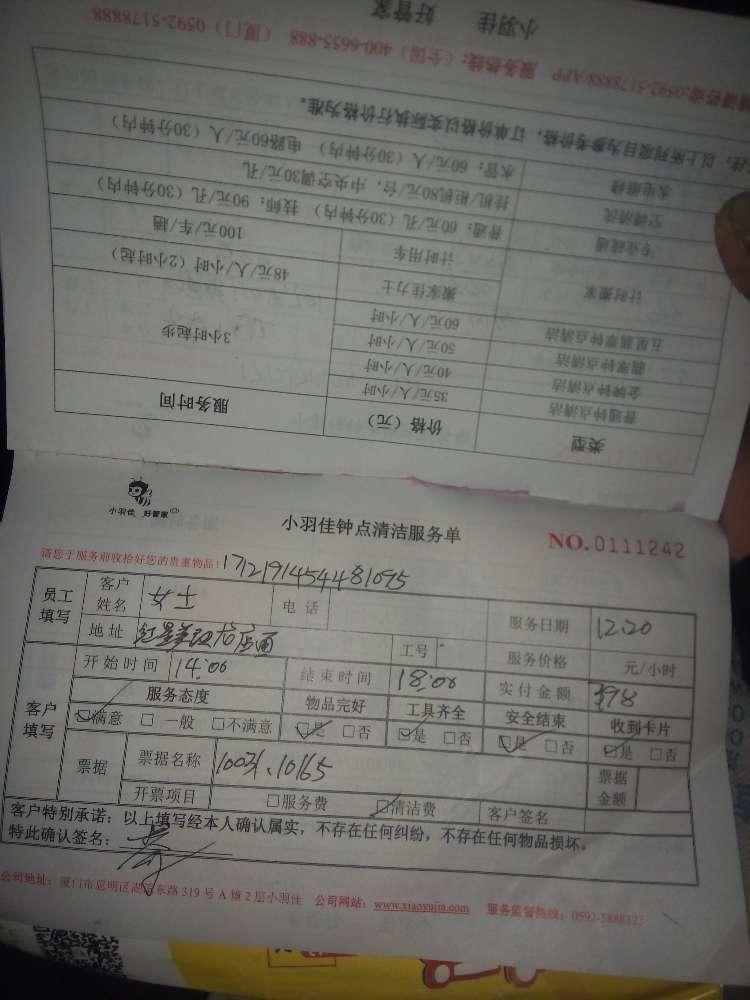 小羽佳 好管家
服务热线：(全国) 400-6655-888 (厦门) 0592-5178888
:0592-5178888 APP
注：以上所列项目为参考价格，订单价格以实际执行价格为准。
水电维修 水管：60元/人 (30分钟内) 电路60元/人 (30分钟内)
空调清洗 挂机/柜机80元/台，中央空调30元/孔
专业疏通 普通：60元/孔 (30分钟内) 技师：90元/孔 (30分钟内)
计时搬家 计时用车 100元/车/趟
搬家佳力士 48元/人/小时 (2小时起)
五星翡翠钟点清洁 60元/人/小时 3小时起步
翡翠钟点清洁 50元/人/小时
金牌钟点清洁 40元/人/小时
普通钟点清洁 35元/人/小时
类型 价格 (元) 服务时间
小羽佳 好管家
小羽佳钟点清洁服务单
NO.0111242
请您于服务前收拾好您的贵重物品！
1712191454481095
员工填写 客户姓名 女士 电话 服务日期 12.20
地址 工号 服务价格 元/小时
客户填写 开始时间 14:00 结束时间 18:00 实付金额 398
服务态度 物品完好 工具齐全 安全结束 收到卡片
满意 一般 不满意 是 否 是 否 是 否 是 否
票据 票据名称 10165 票据金额
开票项目 服务费 清洁费 客户签名
客户特别承诺：以上填写经本人确认属实，不存在任何纠纷，不存在任何物品损坏。
特此确认签名：
公司地址：厦门市思明区湖滨东路319号A幢2层小羽佳 公司网站：www.xiaoyujia.com 服务监督热线：0592-5888123